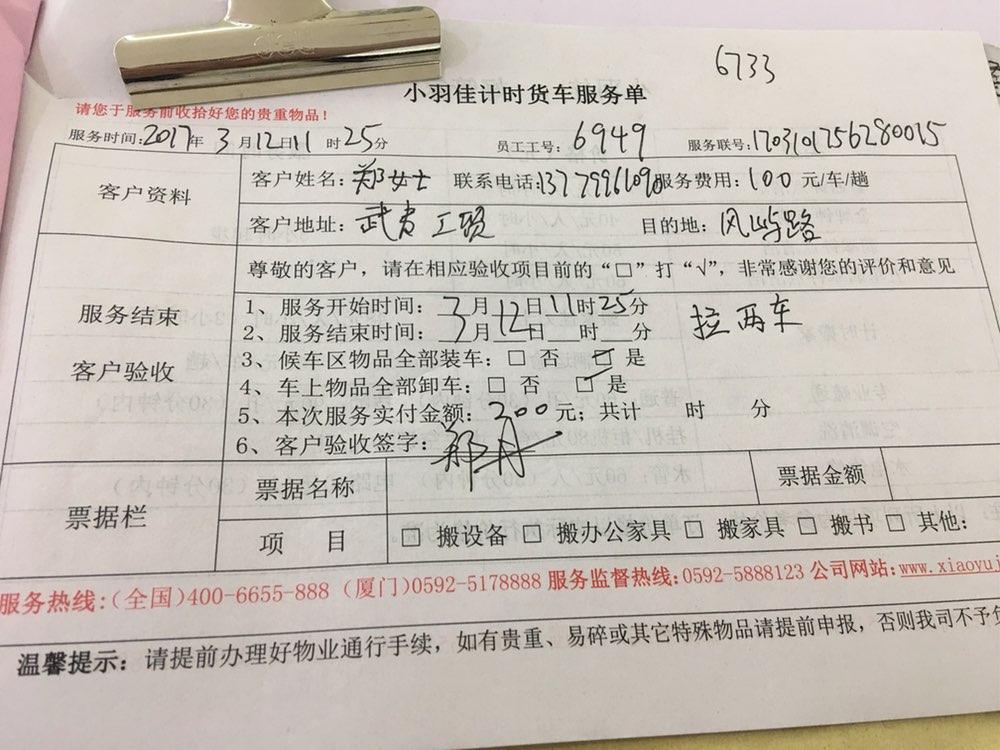 6733
小羽佳计时货车服务单
请您于服务前收拾好您的贵重物品！
服务时间：2017年 3月12日11时25分 员工工号：6949 服务联号：1703101756280015
客户资料
客户姓名：郑女士 联系电话：13779961090服务费用：100元/车/趟
客户地址： 工贸 目的地：凤屿路
尊敬的客户，请在相应验收项目前的“□”打“√”，非常感谢您的评价和意见
服务结束
客户验收
1、服务开始时间：3月12日11时25分
2、服务结束时间：3月12日 时 分
拉两车
3、候车区物品全部装车：□ 否 ☑ 是
4、车上物品全部卸车：□ 否 ☑ 是
5、本次服务实付金额：200元；共计 时 分
6、客户验收签字：郑丹
票据栏
票据名称 票据金额
项 目 □ 搬设备 □ 搬办公家具 □ 搬家具 □ 搬书 □ 其他：
服务热线：(全国)400-6655-888 (厦门)0592-5178888 服务监督热线：0592-5888123 公司网站：www.xiaoyuj
温馨提示：请提前办理好物业通行手续，如有贵重、易碎或其它特殊物品请提前申报，否则我司不予负